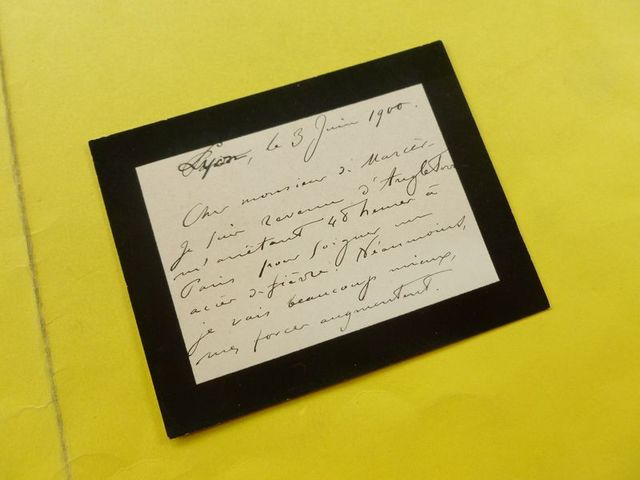 Lyon, le 3 Juin 1900.
Cher monsieur
Je suis revenu d'Angleterre
m'arrêtant 48 heures à
Paris pour soigner un
accès de fièvre. Néanmoins,
je vais beaucoup mieux,
mes forces augmentent.